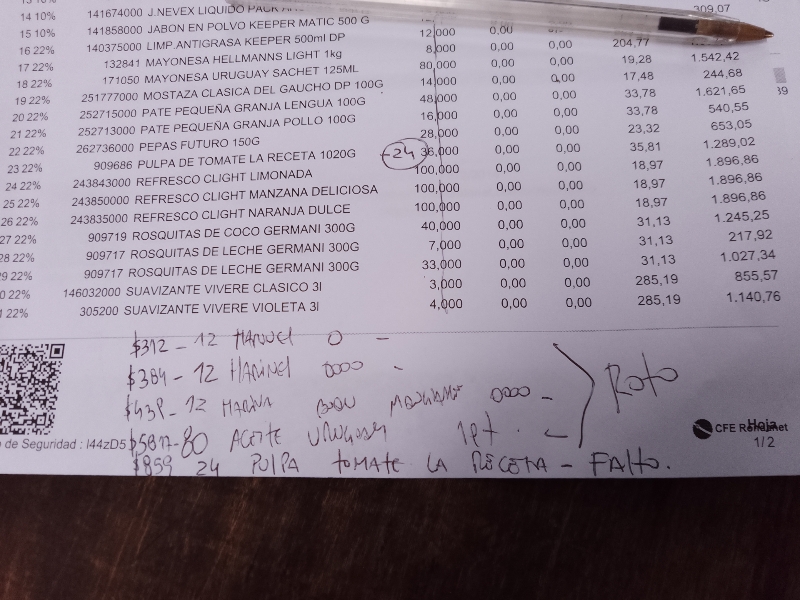 309,07
14 10% 141674000 J.NEVEX LIQUIDO PACK
15 10% 141858000 JABON EN POLVO KEEPER MATIC 500 G
16 22% 140375000 LIMP.ANTIGRASA KEEPER 500ml DP 12,000 0,00
17 22% 132841 MAYONESA HELLMANNS LIGHT 1kg 8,000 0,00 0,00 204,77
18 22% 171050 MAYONESA URUGUAY SACHET 125ML 80,000 0,00 0,00 19,28 1.542,42
19 22% 251777000 MOSTAZA CLASICA DEL GAUCHO DP 100G 14,000 0,00 0,00 17,48 244,68
20 22% 252715000 PATE PEQUEÑA GRANJA LENGUA 100G 48,000 0,00 0,00 33,78 1.621,65
21 22% 252713000 PATE PEQUEÑA GRANJA POLLO 100G 16,000 0,00 0,00 33,78 540,55
22 22% 262736000 PEPAS FUTURO 150G 28,000 0,00 0,00 23,32 653,05
23 22% 909686 PULPA DE TOMATE LA RECETA 1020G -24 36,000 0,00 0,00 35,81 1.289,02
24 22% 243843000 REFRESCO CLIGHT LIMONADA 100,000 0,00 0,00 18,97 1.896,86
25 22% 243850000 REFRESCO CLIGHT MANZANA DELICIOSA 100,000 0,00 0,00 18,97 1.896,86
26 22% 243835000 REFRESCO CLIGHT NARANJA DULCE 100,000 0,00 0,00 18,97 1.896,86
27 22% 909719 ROSQUITAS DE COCO GERMANI 300G 40,000 0,00 0,00 31,13 1.245,25
28 22% 909717 ROSQUITAS DE LECHE GERMANI 300G 7,000 0,00 0,00 31,13 217,92
29 22% 909717 ROSQUITAS DE LECHE GERMANI 300G 33,000 0,00 0,00 31,13 1.027,34
22% 146032000 SUAVIZANTE VIVERE CLASICO 3l 3,000 0,00 0,00 285,19 855,57
22% 305200 SUAVIZANTE VIVERE VIOLETA 3l 4,000 0,00 0,00 285,19 1.140,76
$312 - 12 0 -
$384 - 12 0000 -
$438 - 12 0000 -
80 ACEITE URUGUAY 1 -
Roto
de Seguridad : I44zD5
$859 24 PULPA TOMATE LA RECETA - FALTO.
CFE
Hoja
1/2